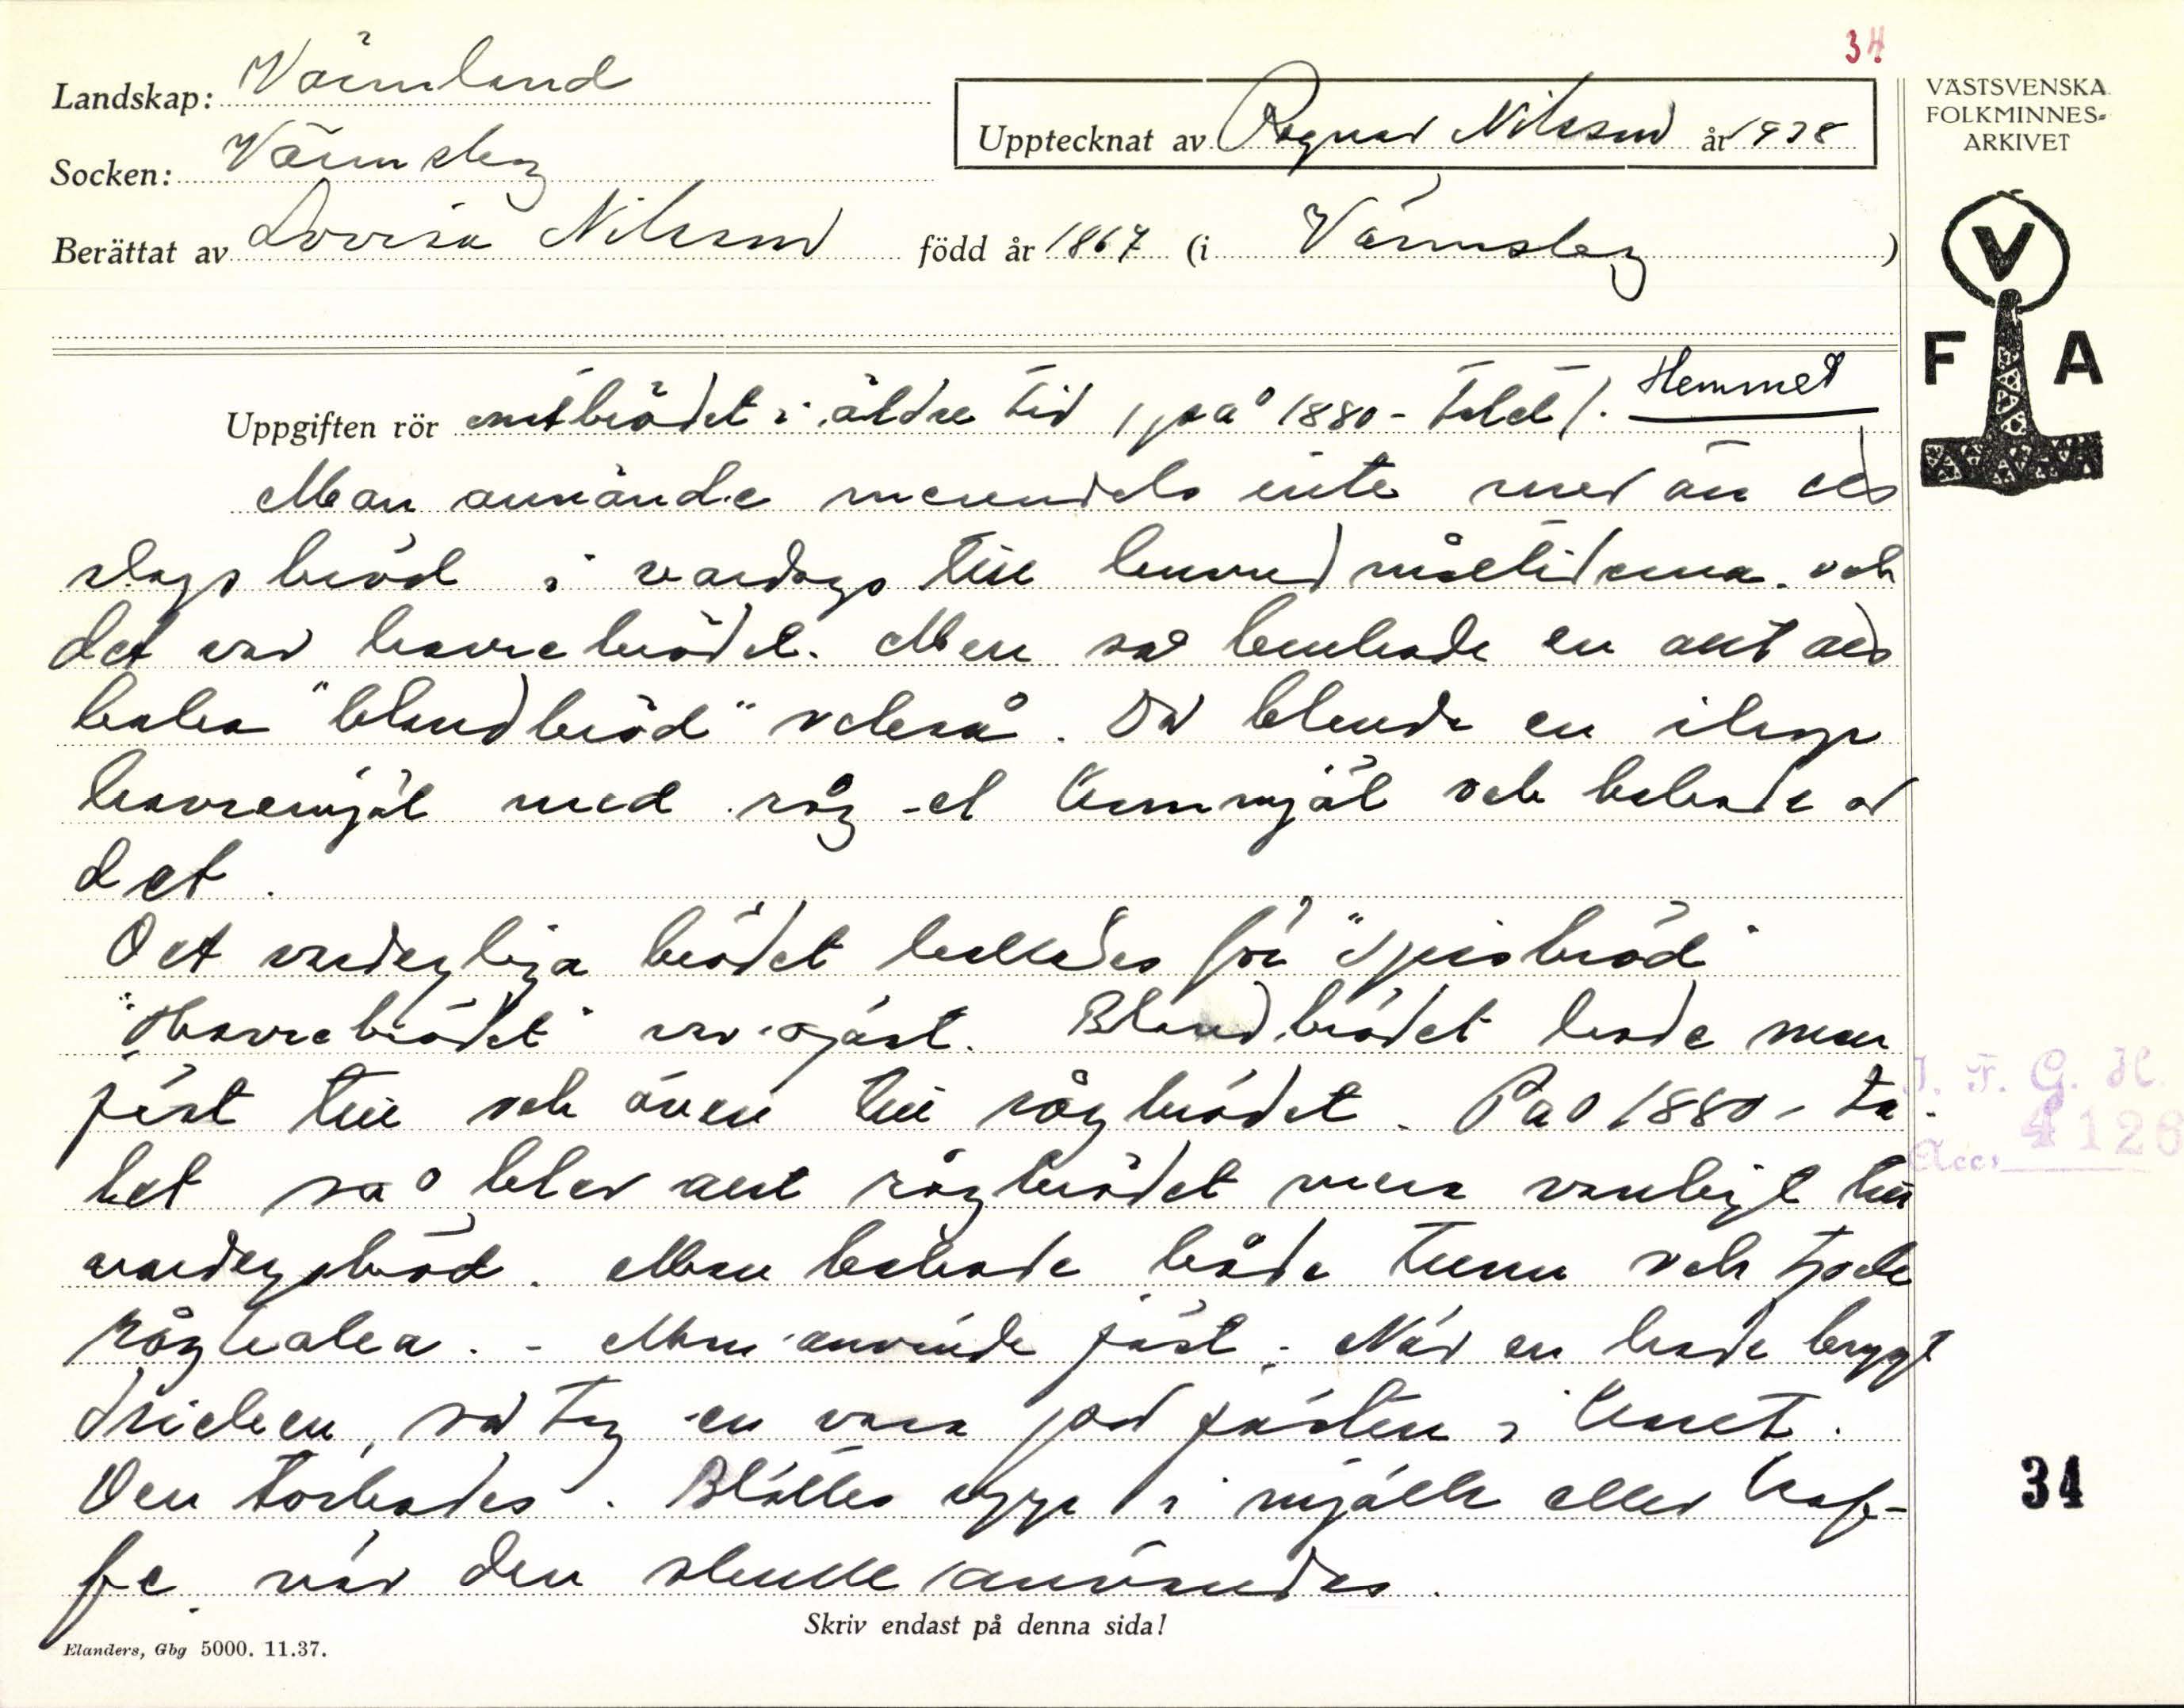 34
Landskap: Värmland
Upptecknat av Ragnar Nilsson år 1938
VÄSTSVENSKA
FOLKMINNES-
ARKIVET
Socken: Värmskog
Berättat av Lovisa Nilsson född år 1867 (i Värmskog)
V
F A
Uppgiften rör matbrödet i äldre tid (på 1880-talet). Hemmet
Man använde merendels inte mer än ed
slags bröd i vardags till huvudmåltiderna. och
det var havrebrödet. Men så brukade en allt
baka "blandbröd" också. Då blanda en ihop
havremjöl med råg -el kornmjöl och bakade av
det.
Det vardagliga brödet kallades för "spisbröd"
"Havrebrödet" var ojäst. Blandbrödet hade man
jäst till och även till rågbrödet. På 1880-ta-
let så blev allt rågbrödet mera vanligt till
vardagsbröd. Man bakade både tunn och tjock
rågkakor. - Man använde jäst. När en hade brygt
dricken, så tog en vara på jästen i karet.
Den torkades. Blöttes upp i mjölk eller kaf-
fe när den skulle användas.
Skriv endast på denna sida!
Elanders, Gbg 5000. 11.37.
I. F. G. H.
Acc. 4126
34